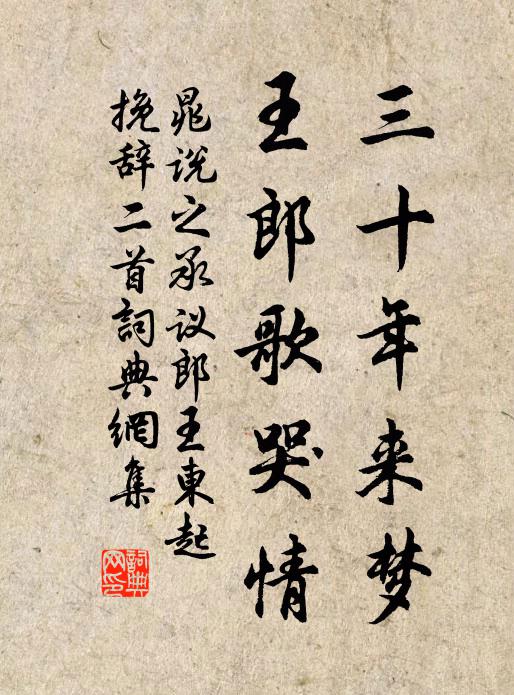 三十年来梦
王郎歌哭情
晁说之承议郎王東起
挽辞二首詞典網集
詞典网印